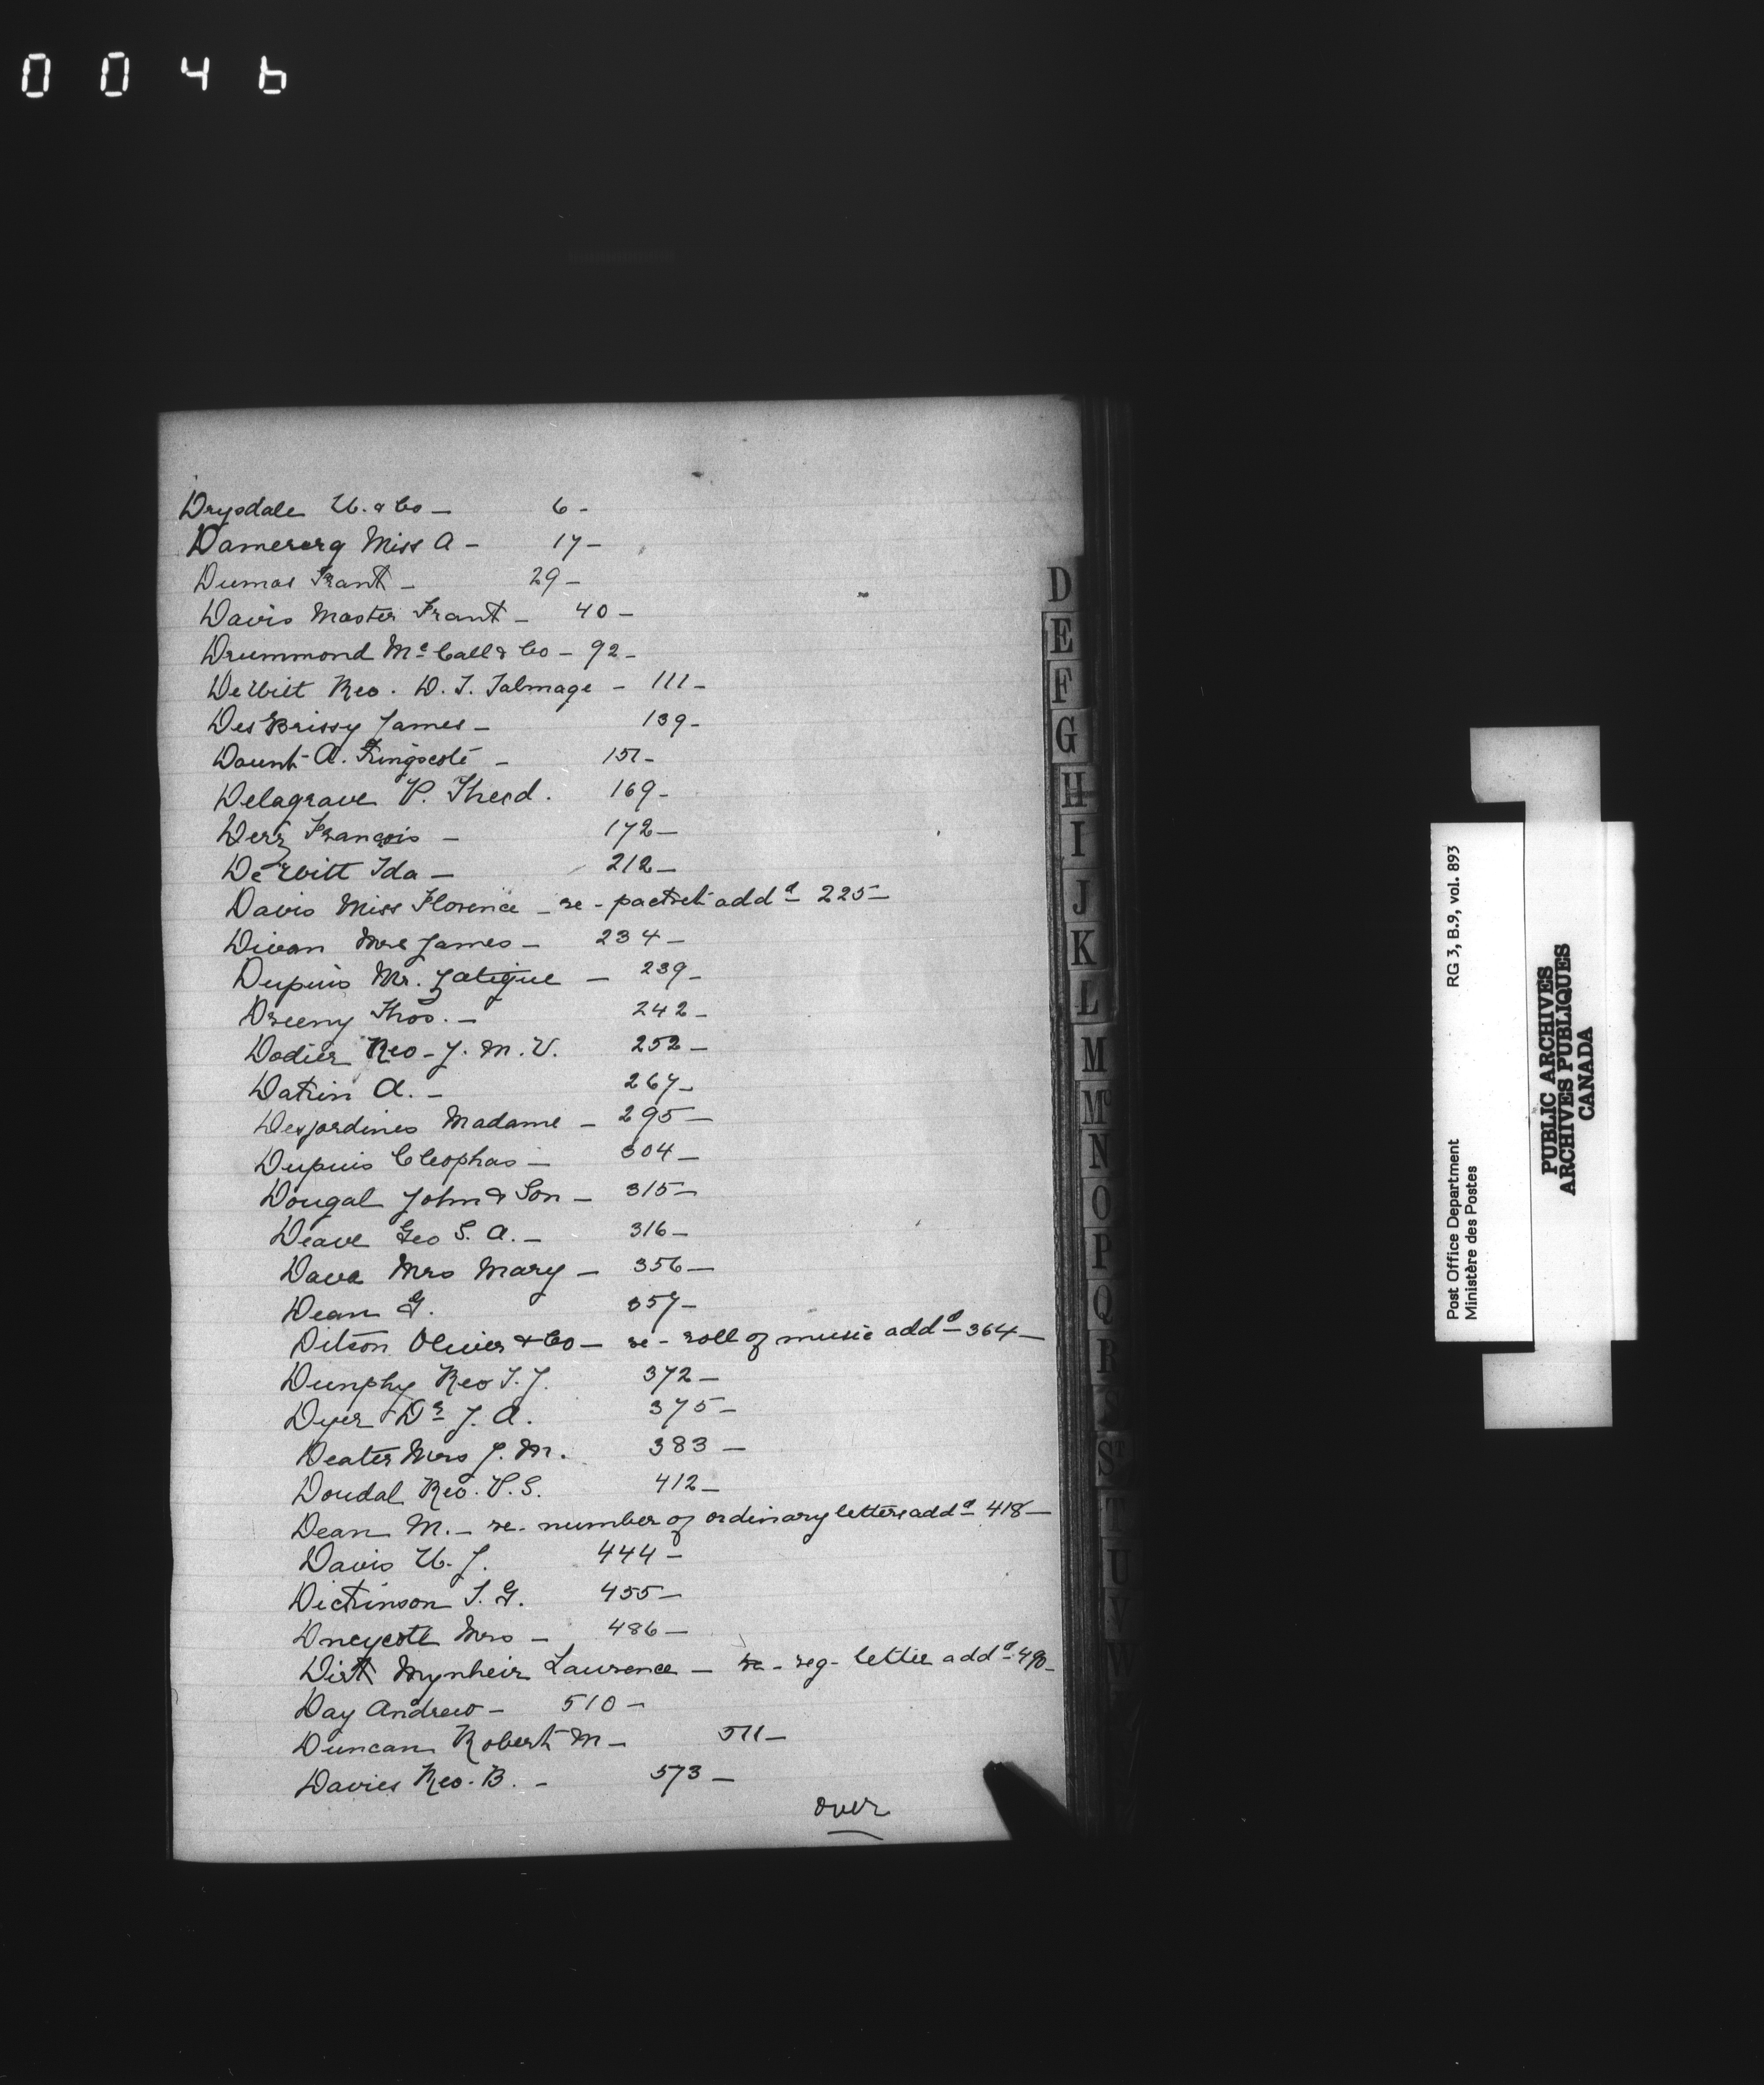 0046
Drysdale W. & Co — 6 –
Damererg Miss A – 17 –
Dumas Frank – 29 –
Davis Master Frank – 40 –
Drummond Mc Call & Co – 92 –
DeWitt Rev. D. T. Talmage – 111 –
DesBrissy James – 139 –
Daunt A. Kingscote – 151 –
Delagrave P. Theod. 169 –
Derz François – 172 –
DeWitt Ida – 212 –
Davis Miss Florence – re - packet add d 225 –
Divan Mrs James – 234 –
Dupuis Mr. Zatique – 239 –
Dreeny Thos. – 242 –
Dodier Rev – J. M. V. 252 –
Dakin A. – 267 –
Desjardines Madame – 295 –
Dupuis Cleophas – 304 –
Dougal John & Son – 315 –
Deave Geo S. A. – 316 –
Dave Mrs Mary – 356 –
Dean G. 357 –
Ditson Oliver & Co – re - roll of music add d 364 –
Dunphy Rev T. J. 372 –
Dyer Dr J. A. 375 –
Deater Mrs J. M. 383 –
Doudal Rev. P. S. 412 –
Dean M. – re - number of ordinary letters add d 418 –
Davis W. J. 444 –
Dickinson T. G. 455 –
Mrs – 486 –
Dirk Mynheir Laurence – re - reg - letter add d 490 –
Day Andrew – 510 –
Duncan Robert M – 511 –
Davies Rev. B. – 573 –
over
D
E
F
G
H
I
J
K
L
M
Mc
N
O
P
Q
R
S
ST
T
U
V
W
Post Office Department RG 3, B.9, vol. 893
Ministère des Postes
PUBLIC ARCHIVES
ARCHIVES PUBLIQUES
CANADA